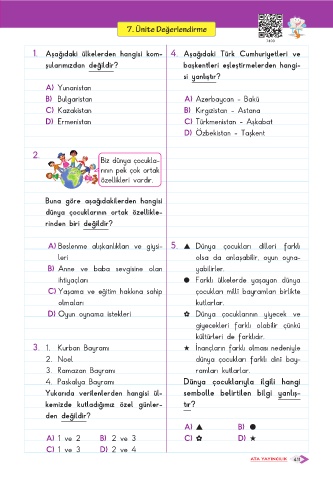 7. Ünite Değerlendirme
1. Aşağıdaki ülkelerden hangisi kom-
şularımızdan değildir?
A) Yunanistan
B) Bulgaristan
C) Kazakistan
D) Ermenistan
2.
Biz dünya çocukla-
rının pek çok ortak
özellikleri vardır.
Buna göre aşağıdakilerden hangisi
dünya çocuklarının ortak özellikle-
rinden biri değildir?
A) Beslenme alışkanlıkları ve giysi-
leri
B) Anne ve baba sevgisine olan
ihtiyaçları
C) Yaşama ve eğitim hakkına sahip
olmaları
D) Oyun oynama istekleri
3. 1. Kurban Bayramı
2. Noel
3. Ramazan Bayramı
4. Paskalya Bayramı
Yukarıda verilenlerden hangisi ül-
kemizde kutladığımız özel günler-
den değildir?
A) 1 ve 2 B) 2 ve 3
C) 1 ve 3 D) 2 ve 4
4. Aşağıdaki Türk Cumhuriyetleri ve
başkentleri eşleştirmelerden hangi-
si yanlıştır?
A) Azerbaycan - Bakü
B) Kırgızistan - Astana
C) Türkmenistan - Aşkabat
D) Özbekistan - Taşkent
5. ▲ Dünya çocukları dilleri farklı
olsa da anlaşabilir, oyun oyna-
yabilirler.
● Farklı ülkelerde yaşayan dünya
çocukları millî bayramları birlikte
kutlarlar.
✿ Dünya çocuklarının yiyecek ve
giyecekleri farklı olabilir çünkü
kültürleri de farklıdır.
★ İnançların farklı olması nedeniyle
dünya çocukları farklı dinî bay-
ramları kutlarlar.
Dünya çocuklarıyla ilgili hangi
sembolle belirtilen bilgi yanlış-
tır?
A) ▲ B) ●
C) ✿ D) ★
ATA YAYINCILIK